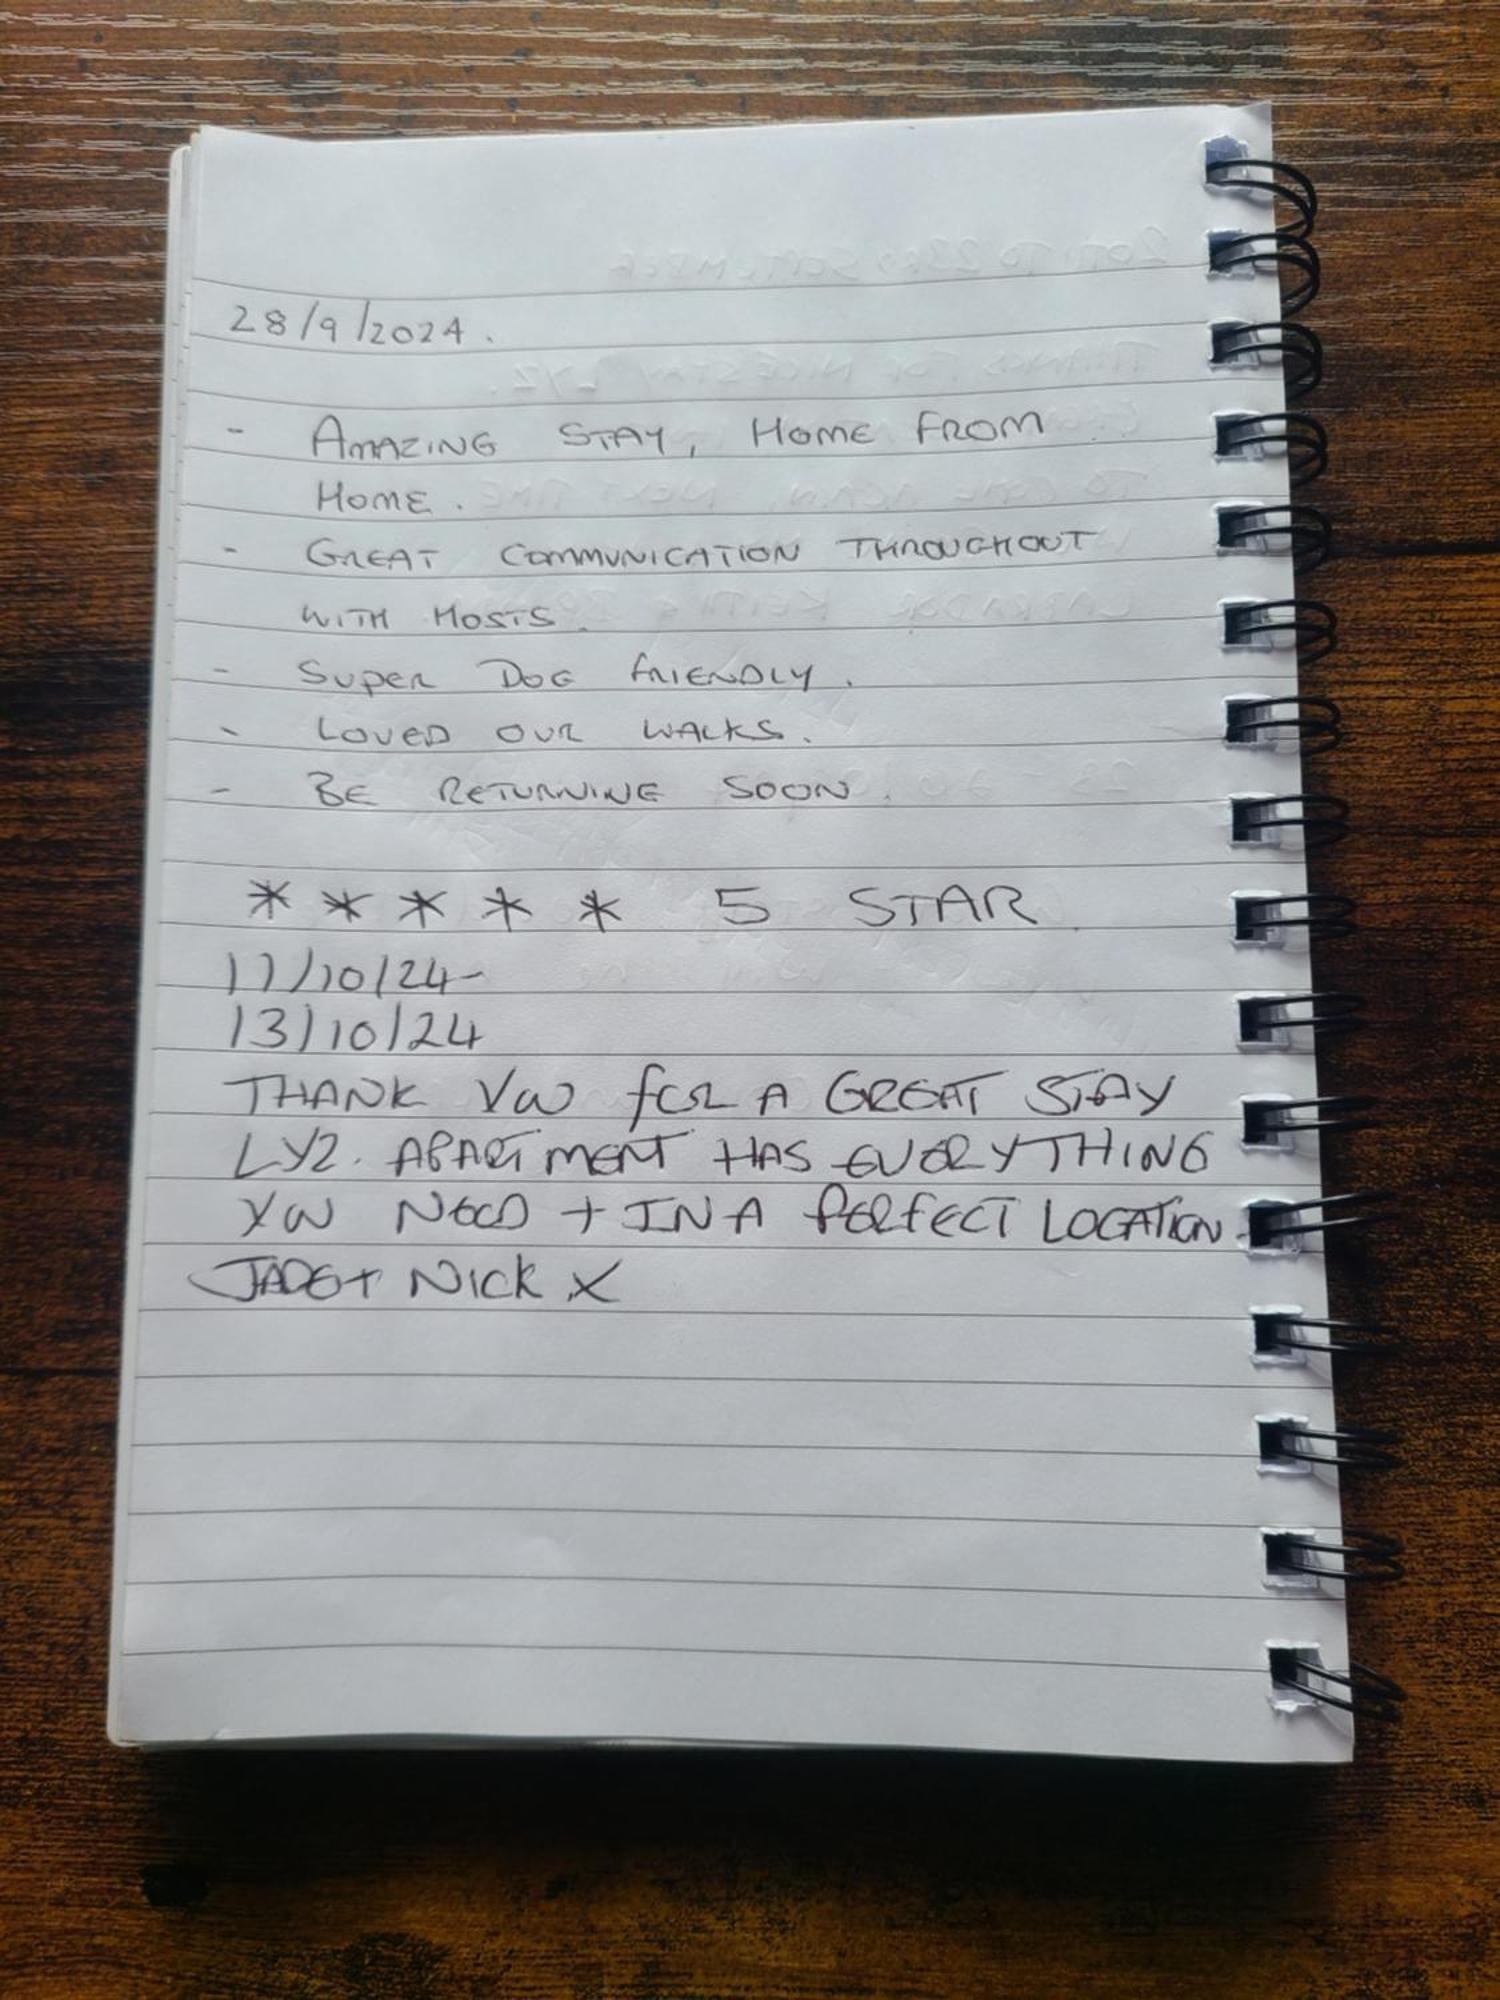 28/9/2024.
- AMAZING STAY, HOME FROM
HOME.
- GREAT COMMUNICATION THROUGHOUT
WITH HOSTS.
- SUPER DOG FRIENDLY.
- LOVED OUR WALKS.
- BE RETURNING SOON.
* * * * * 5 STAR
11/10/24-
13/10/24
THANK YOU FOR A GREAT STAY
LYZ. APARTMENT HAS EVERYTHING
YOU NEED + IN A PERFECT LOCATION.
JADE + NICK X